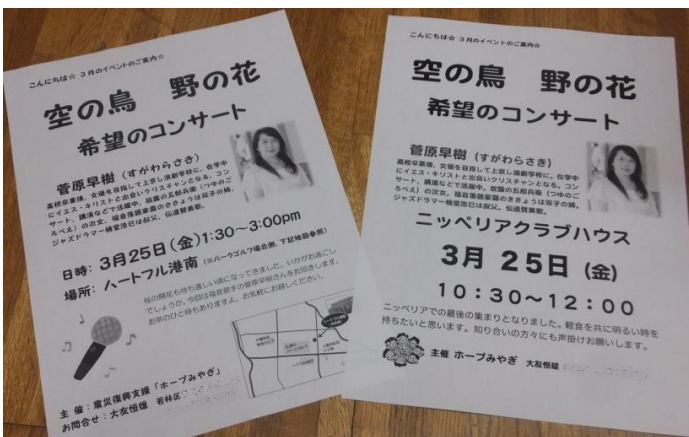 こんにちは☆ 3月のイベントのご案内☆
空の鳥 野の花
希望のコンサート
菅原早樹 (すがわらさき)
高校卒業後、女優を目指して上京し演劇学校に、在学中
にイエス・キリストと出会いクリスチャンとなる。コン
サート、講演などで活躍中。故露の五郎兵衛(つゆのご
ろべえ)の次女、福音落語家露のききょうは双子の姉。
ジャズドラマー楠堂浩己は叔父。伝道賛美歌。
日時: 3月25日(金)1:30~3:00pm
場所: ハートフル港南 (※パークゴルフ場北側、下記地図参照)
桜の開花も待ち遠しい頃になってきました。いかがお過ごし
でしょうか。今回は福音歌手の菅原早樹さんをお招きします。
お茶のひと時もありますよ。お気軽にお越しください。
主 催:震災復興支援「ホープみやぎ」
お問合せ:大友恒雄 若林区
こんにちは☆ 3月のイベントのご案内☆
空の鳥 野の花
希望のコンサート
菅原早樹 (すがわらさき)
高校卒業後、女優を目指して上京し演劇学校に、在学中
にイエス・キリストと出会いクリスチャンとなる。コン
サート、講演などで活躍中。故露の五郎兵衛(つゆのご
ろべえ)の次女、福音落語家露のききょうは双子の姉。
ジャズドラマー楠堂浩己は叔父。伝道賛美歌。
ニッペリアクラブハウス
3月 25日 (金)
10:30~12:00
ニッペリアでの最後の集まりとなりました。軽食を共に明るい時を
持ちたいと思います。知り合いの方々にも声掛けお願いします。
主催 ホープみやぎ 大友恒雄